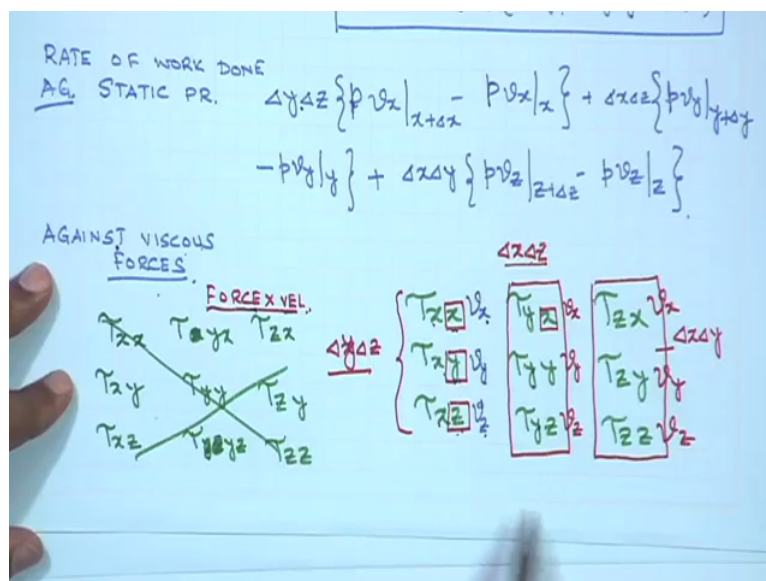 RATE OF WORK DONE
AG. STATIC PR. ΔyΔz{pvx|x+Δx - pvx|x} + ΔxΔz{pvy|y+Δy
- pvy|y} + ΔxΔy{pvz|z+Δz - pvz|z}
AGAINST VISCOUS
FORCES
FORCE X VEL.
τxx τyx τzx
τxy τyy τzy
τxz τyz τzz
ΔxΔz
ΔyΔz { τxx vx τyx vx τzx vx
τxy vy τyy vy τzy vy ΔxΔy
τxz vz τyz vz τzz vz